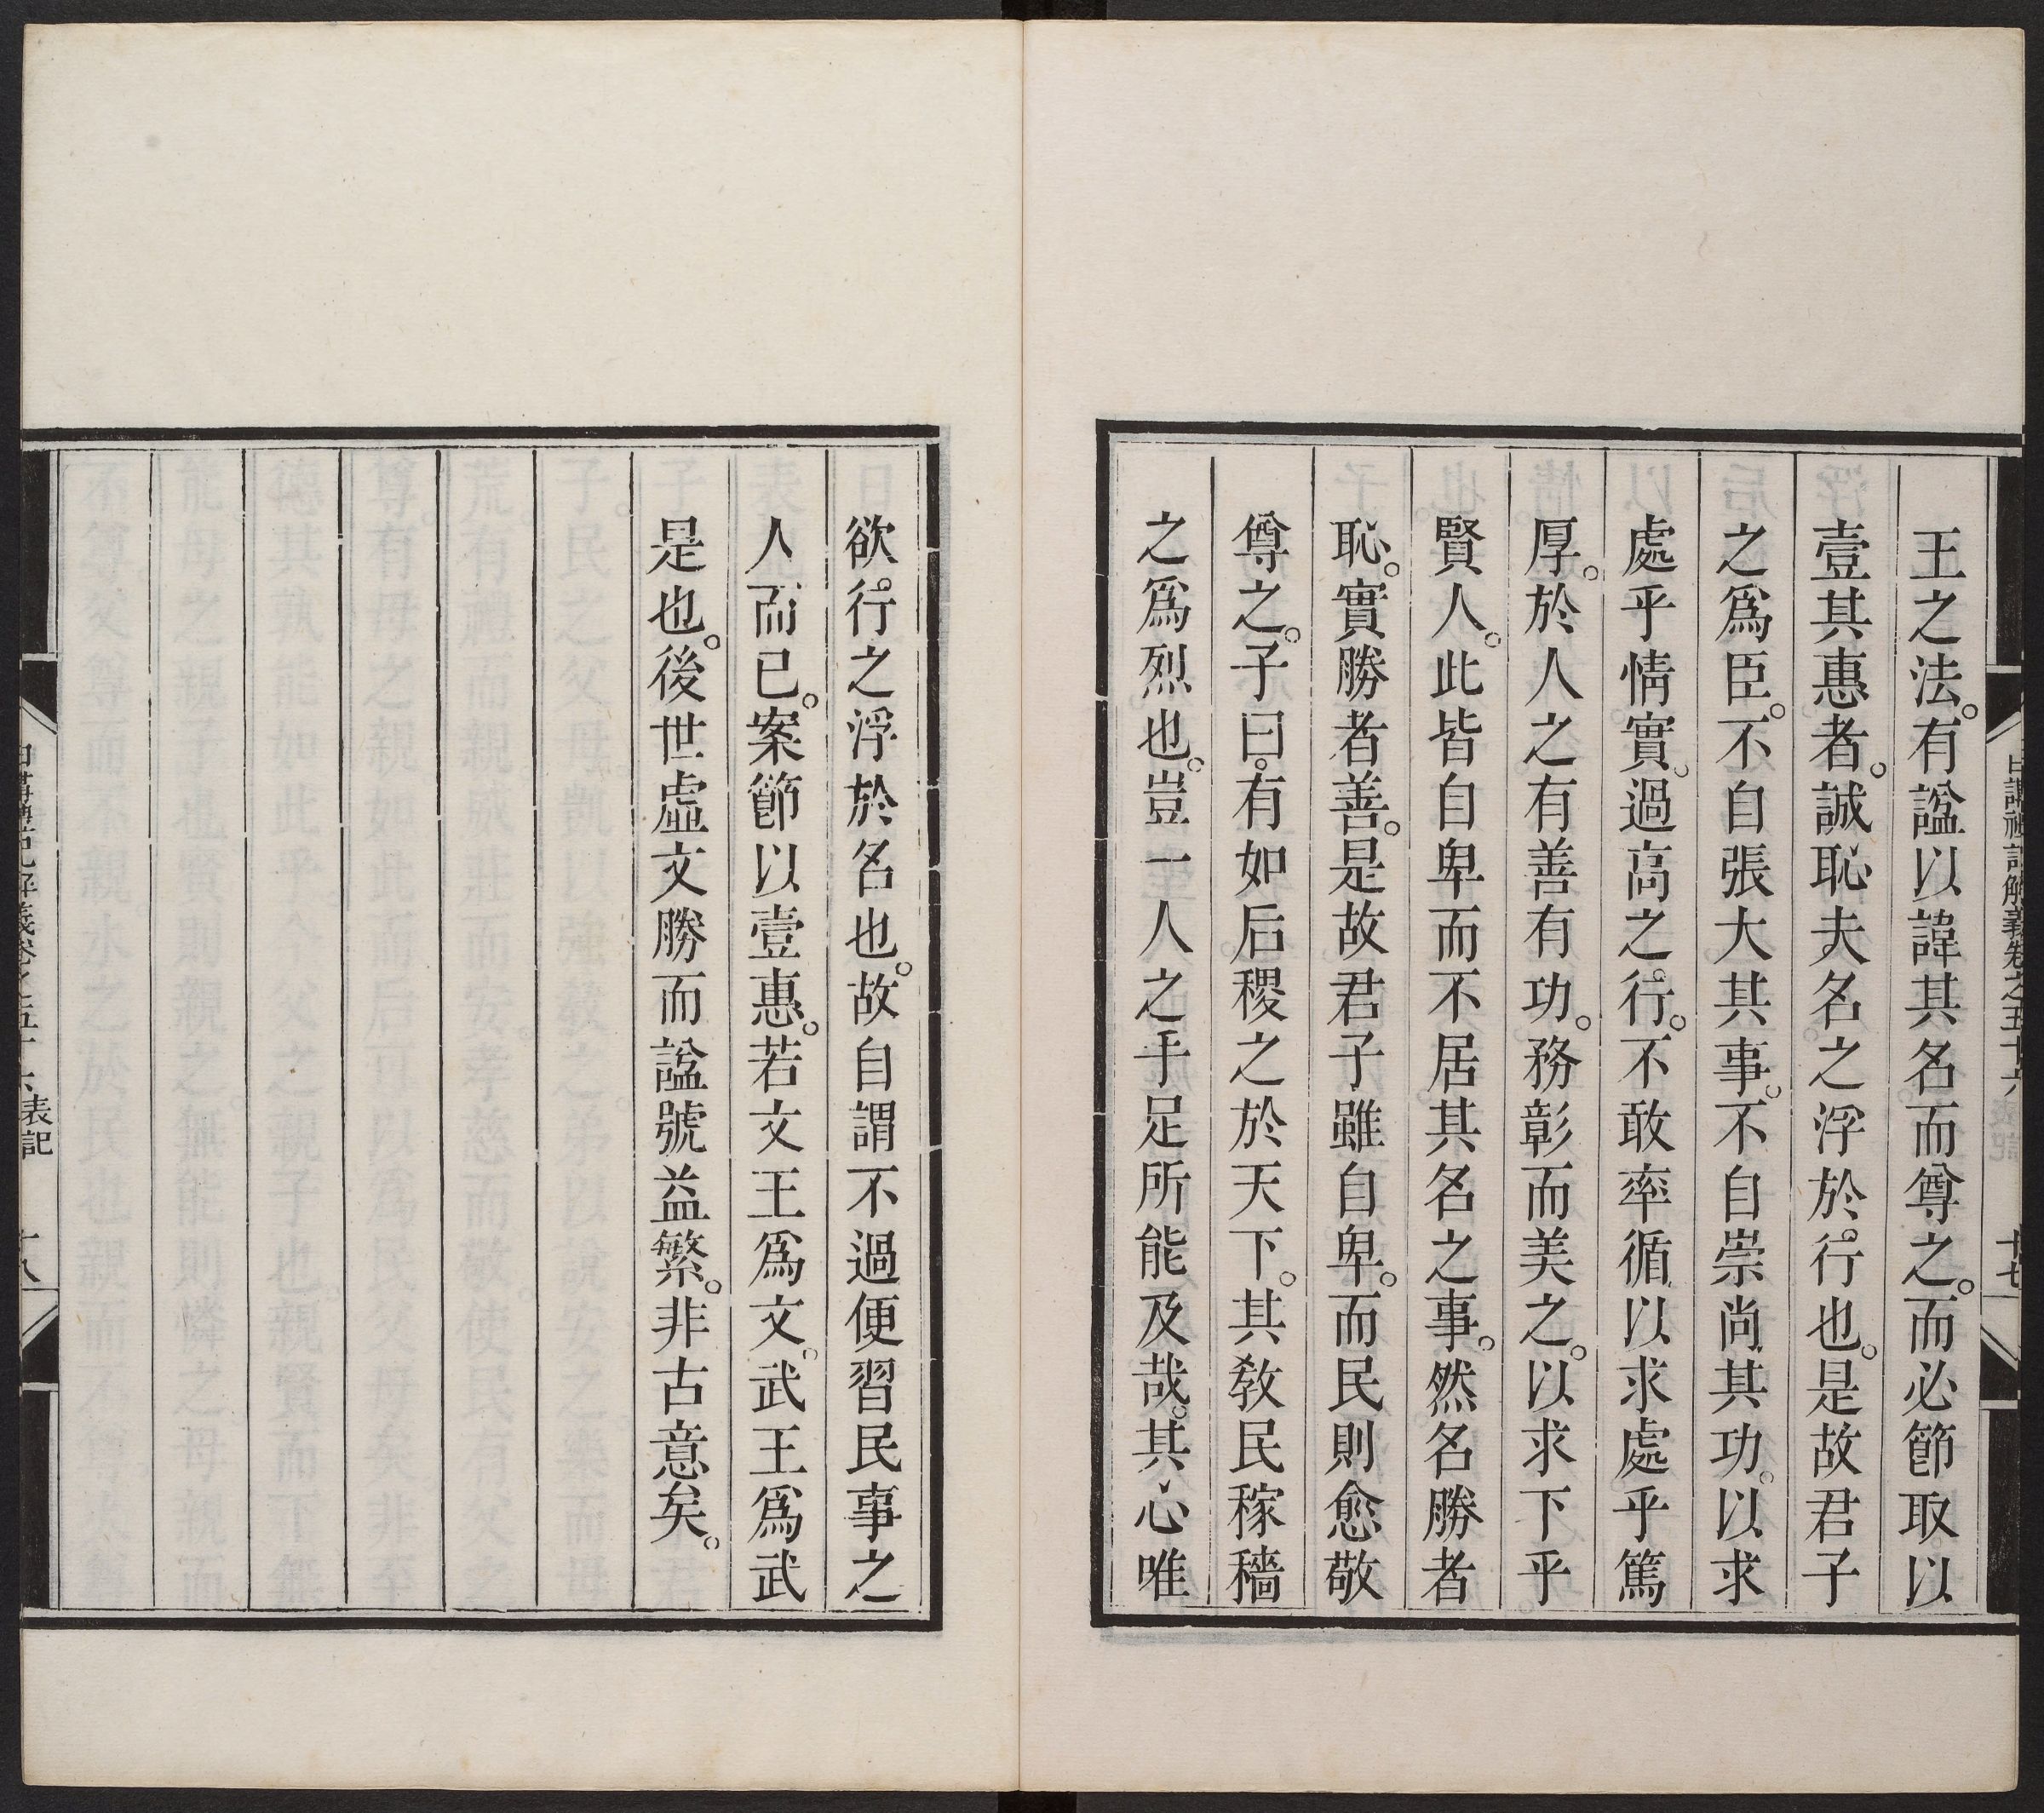 日講禮記解義卷之五十六 表記 十七
王之法。有諡以諱其名而尊之。而必節取以
壹其惠者。誠恥夫名之浮於行也。是故君子
之爲臣。不自張大其事。不自崇尚其功。以求
處乎情實。過高之行。不敢率循以求處乎篤
厚。於人之有善有功。務彰而美之。以求下乎
賢人。此皆自卑而不居其名之事。然名勝者
恥。實勝者善。是故君子雖自卑。而民則愈敬
尊之。子曰。有如后稷之於天下。其敎民稼穡
之爲烈也。豈一人之手足所能及哉。其心唯
欲行之浮於名也。故自謂不過便習民事之
人而已。案節以壹惠。若文王爲文。武王爲武
是也。後世虛文勝而諡號益繁。非古意矣。
日講禮記解義卷之五十六 表記 十八